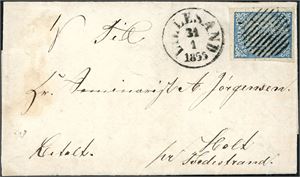 Til
LILLESAND
31
1
1855
Hr. Seminarist A. Jørgensen.
Holt
Betalt. pr Tvedestrand.